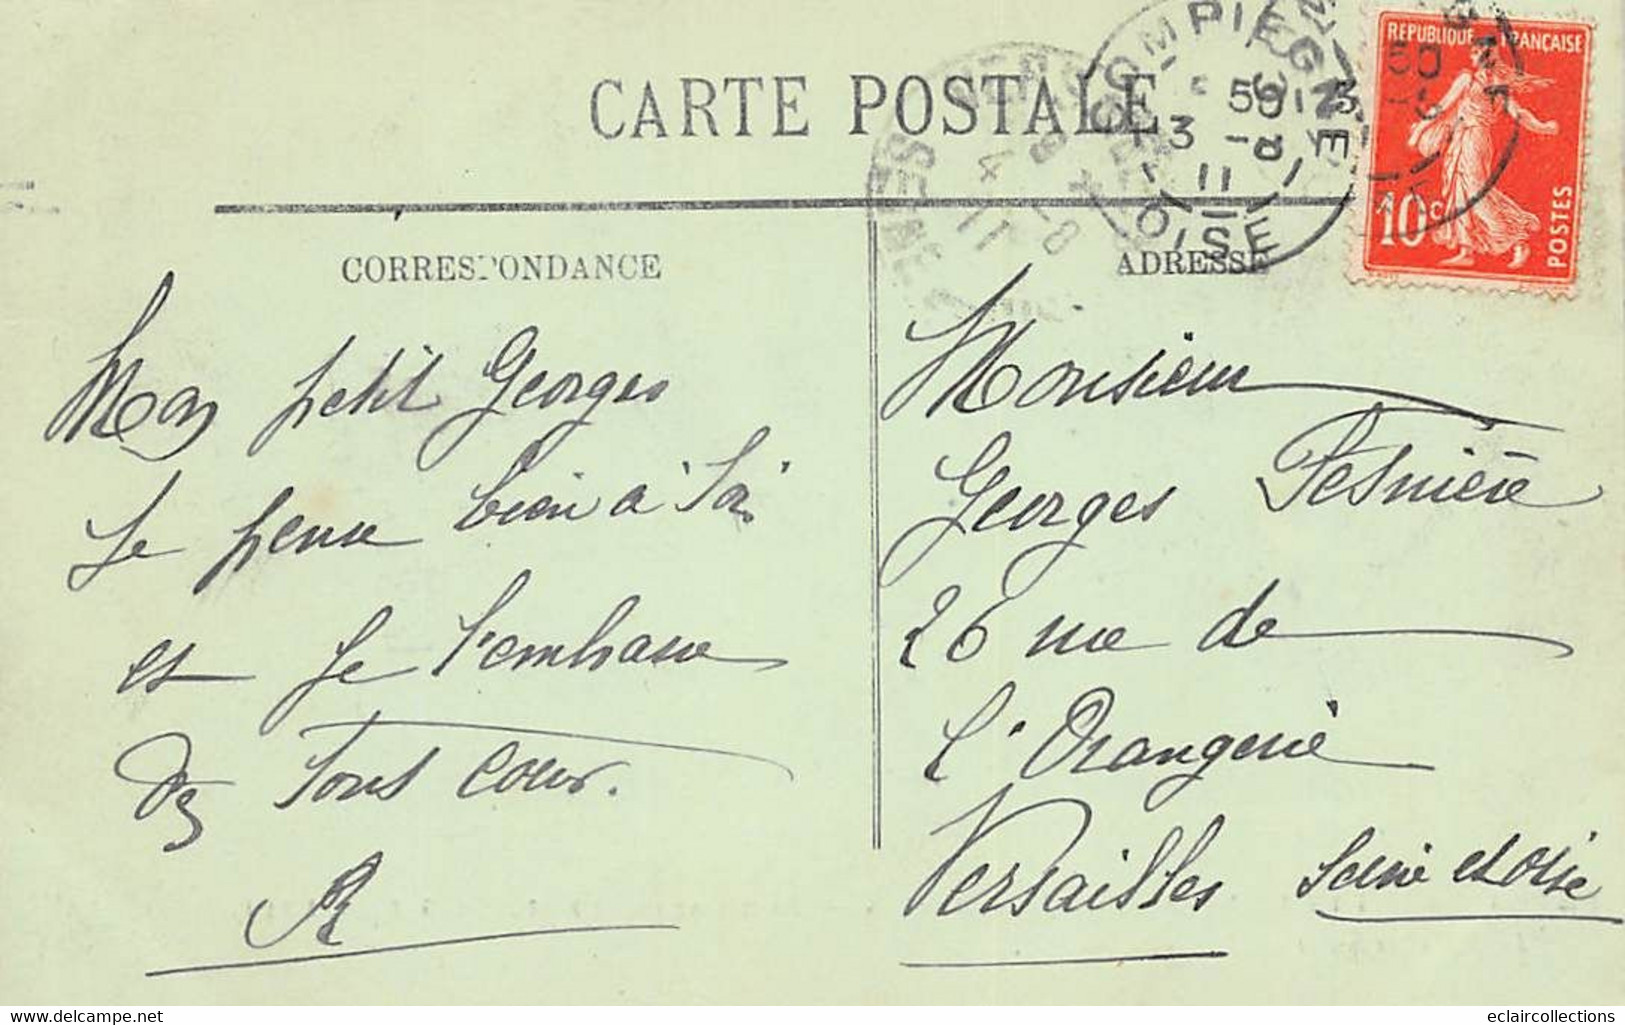 CARTE POSTALE
CORRESPONDANCE
Mon petit Georges
Je pense bien à toi
et je t'embrasse
de tout cœur.
R
ADRESSE
Monsieur
Georges Pesnière
26 rue de
l'Orangerie
Versailles Seine et Oise
REPUBLIQUE FRANÇAISE
10c
POSTES
COMPIEGNE
OISE
www.delcampe.net
eclaircollections